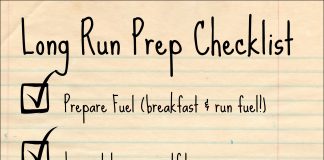 Long Run Prep Checklist
Prepare Fuel (breakfast & run fuel!)